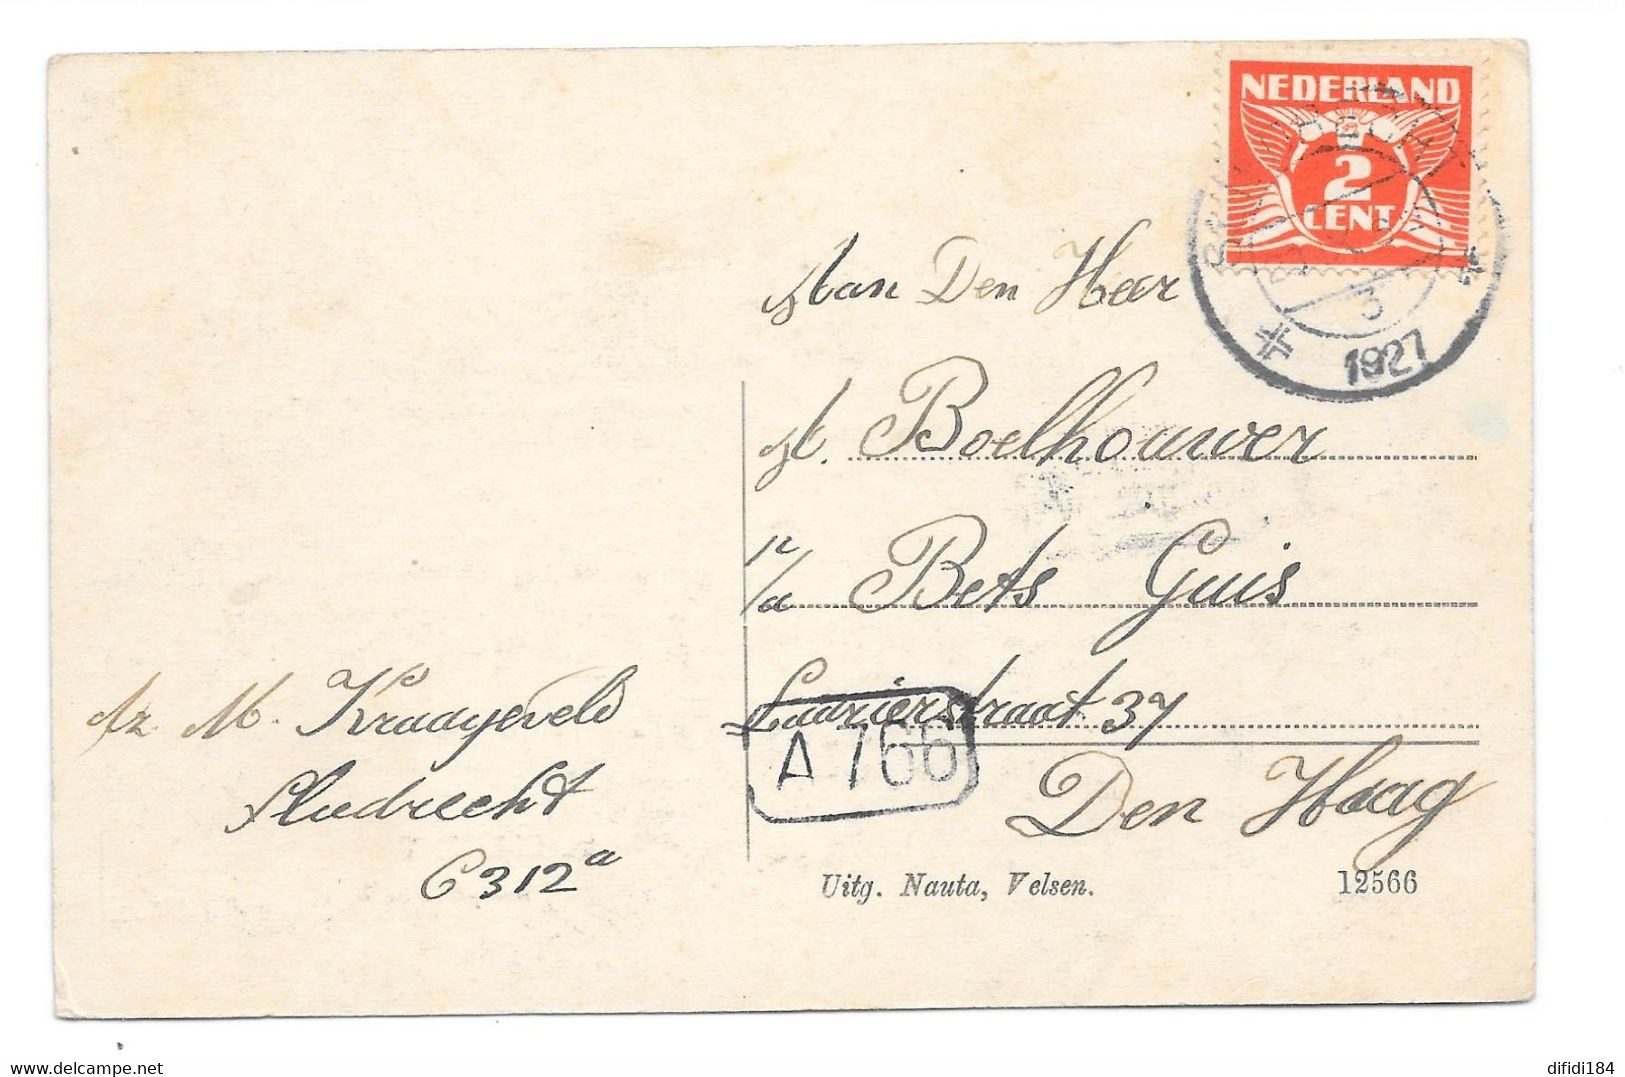 NEDERLAND
2
CENT
3
1927
Aan Den Heer
A. Boelhouwer
p/a Bets Guis
Laurierstraat 37
A 766
Den Haag
Az M. Kraayeveld
Sliedrecht
C 312a
Uitg. Nauta, Velsen.
12566
www.delcampe.net
difidi184